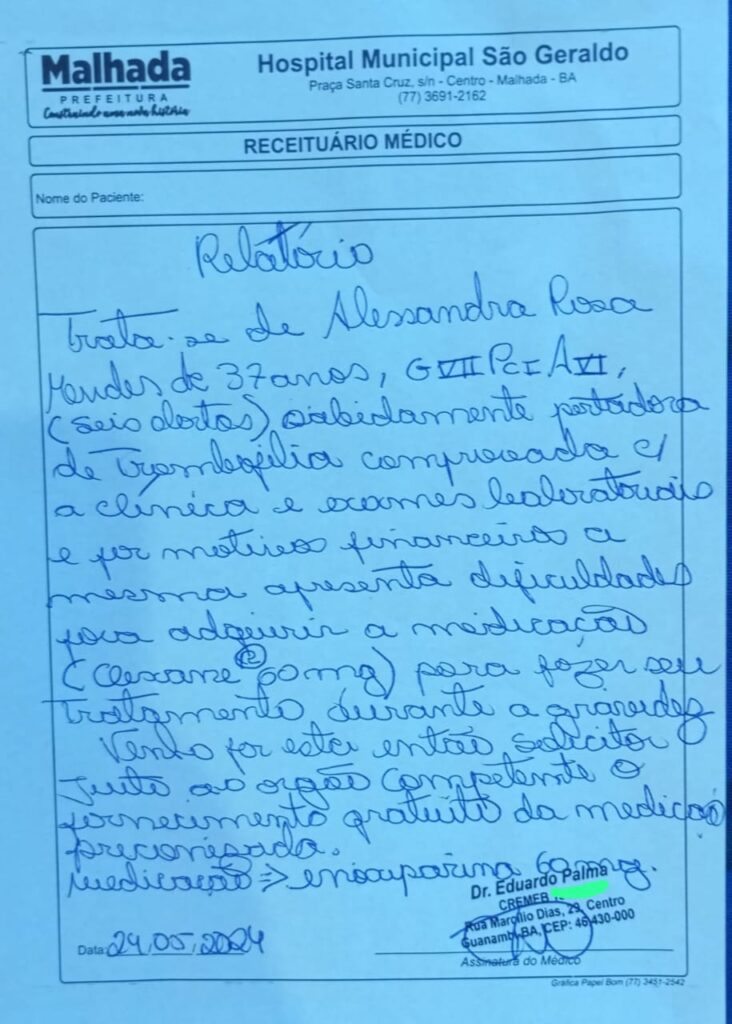 Malhada
PREFEITURA
Construindo uma nova história
Hospital Municipal São Geraldo
Praça Santa Cruz, s/n - Centro - Malhada - BA
(77) 3691-2162
RECEITUÁRIO MÉDICO
Nome do Paciente:
Relatório
Trata-se de Alessandra Rosa
Mendes de 37 anos, GVII PcI AVI,
(seis abortos) sabidamente portadora
de Trombofilia comprovada c/
a clínica e exames laboratoriais
e por motivos financeiros a
mesma apresenta dificuldades
para adquirir a medicação
(Clexane ® 60mg) para fazer seu
tratamento durante a gravidez
Venho por esta então, solicitar
junto ao orgão competente o
fornecimento gratuito da medicação
preconizada.
Medicação ⇒ enoxaparina 60mg.
Dr. Eduardo Palma
CREMEB
Rua Marcílio Dias, 29, Centro
Guanambi-BA, CEP: 46430-000
Data: 24.05.2024
Assinatura do Médico
Gráfica Papel Bom (77) 3451-2542